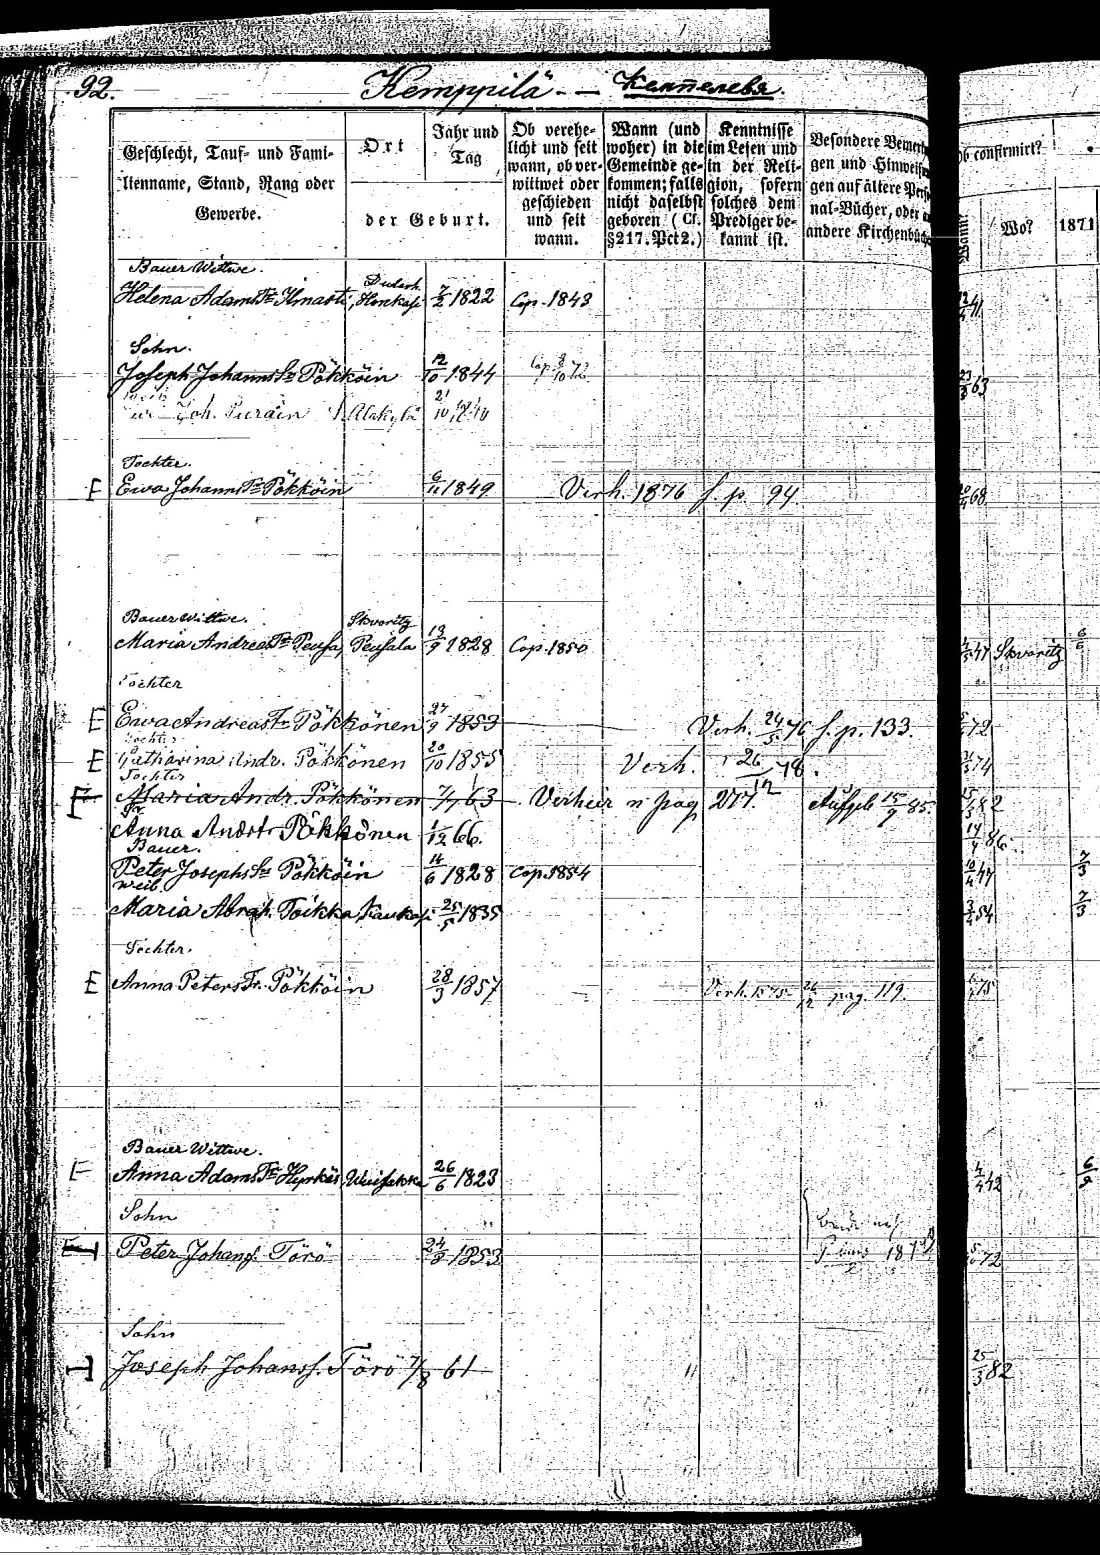 92.
Kemppilä - — Кемпелевя.
Geschlecht, Tauf- und Fami-
lienname, Stand, Rang oder
Gewerbe.
Ort
Jahr und
Tag
der Geburt.
Ob verehe-
licht und seit
wann, ob ver-
wittwet oder
geschieden
und seit
wann.
Wann (und
woher) in die
Gemeinde ge-
kommen; falls
nicht daselbst
geboren (Cf.
§217. Pct 2.)
Kenntnisse
im Lesen und
in der Reli-
gion, sofern
solches dem
Prediger be-
kannt ist.
Besondere Bemer
gen und Hinweis
gen auf ältere Per
nal-Bücher, oder
andere Kirchenbüch
Ob confirmirt?
Wann?
Wo?
1871
Bauer Wittwe.
Helena Adams Tr Ilmasti, 7/2 1822 Cop. 1843
Sohn.
Joseph Johanns Sn Pökköin 12/10 1844 Cop. 8/10 72 63
Joh. Puräin Alakylä
Tochter.
E Ewa Johanns Tr Pökköin 1849 Verh. 1876 s. p. 94 68
Bauer Wittwe. Skworitz
Maria Andreas Tr Peusa, Peusala 13/9 1828 Cop. 1850 47 Skworitz
Tochter
E Ewa Andreas Tr Pökkönen 27/9 1853 Verh. 24/5 76 s. p. 133. 72
Tochter
E Catharina Andr. Pökkönen 20/10 1855 Verh. 26/12 78. 74
Tochter
F Maria Andr. Pökkönen 7/7 63 Verheir n pag 277. Aufgeb 15/9 85. 82
Tr
Anna Andr Tr Pökkönen 1/12 66. 86
Bauer.
Peter Josephs Sn Pökköin 14/6 1828 Cop. 1854 47 7/3
Weib
Maria Abrah. Toikka, 25/5 1835 54 7/3
Tochter.
E Anna Peters Tr. Pökköin 28/3 1857 Verh. 1875 26/12 pag. 119. 75
Bauer Wittwe.
Anna Adams Tr Hyrkäs, 26/6 1823 4/4 42 6/9
Sohn
Peter Johans. Törö 1853 72
Sohn
Joseph Johanss. Törö 7/8 61 25/3 82